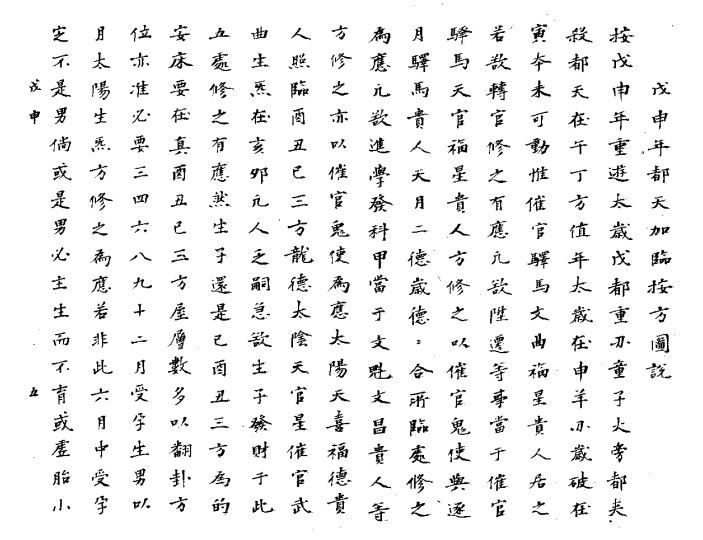 戊申年都天加臨按方圖說
按戊申年重遊太歲戊都重刃童子火旁都夾
殺都天在午丁方值年太歲在申羊刃歲破在
寅夲未可動惟催官驛馬文曲福星貴人居之
若欲轉官修之有應凢欲陞遷等事當于催官
驛馬天官福星貴人方修之以催官鬼使與逐
月驛馬貴人天月二德歲德〻合所臨處修之
為應凢欲進學發科甲當于文魁文昌貴人等
方修之亦以催官鬼使為應太陽天喜福德貴
人照臨酉丑巳三方龍德太陰天官星催官武
曲生炁在亥卯凢人乏嗣急欲生子發財于此
五處修之有應然生子還是巳酉丑三方為的
安床要在真酉丑巳三方屋層數多以翻卦方
位亦准必要三四六八九十二月受孕生男以
月太陽生炁方修之為應若非此六月中受孕
定不是男倘或是男必主生而不育或虛胎小
戊申 五